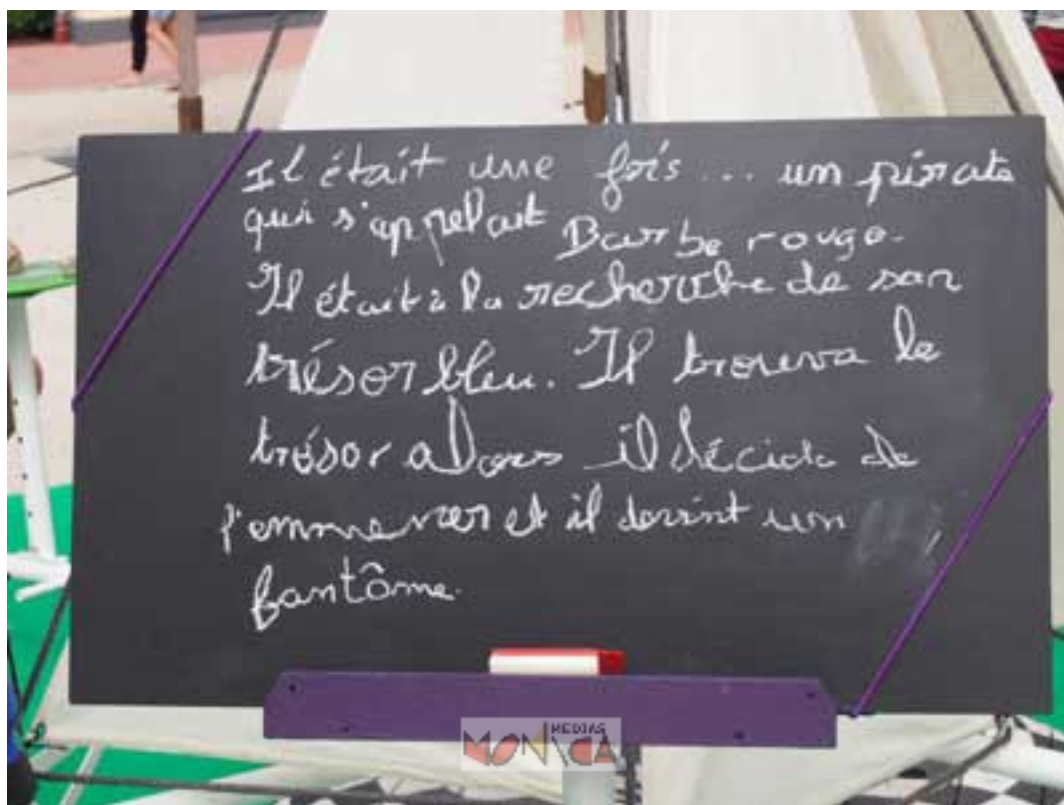 Il était une fois ... un pirate
qui s'appelait Barbe rouge.
Il était à la recherche de son
trésor bleu. Il trouva le
trésor alors il décida de
l'emmener et il devint un
fantôme.
MEDIAS
MONACA